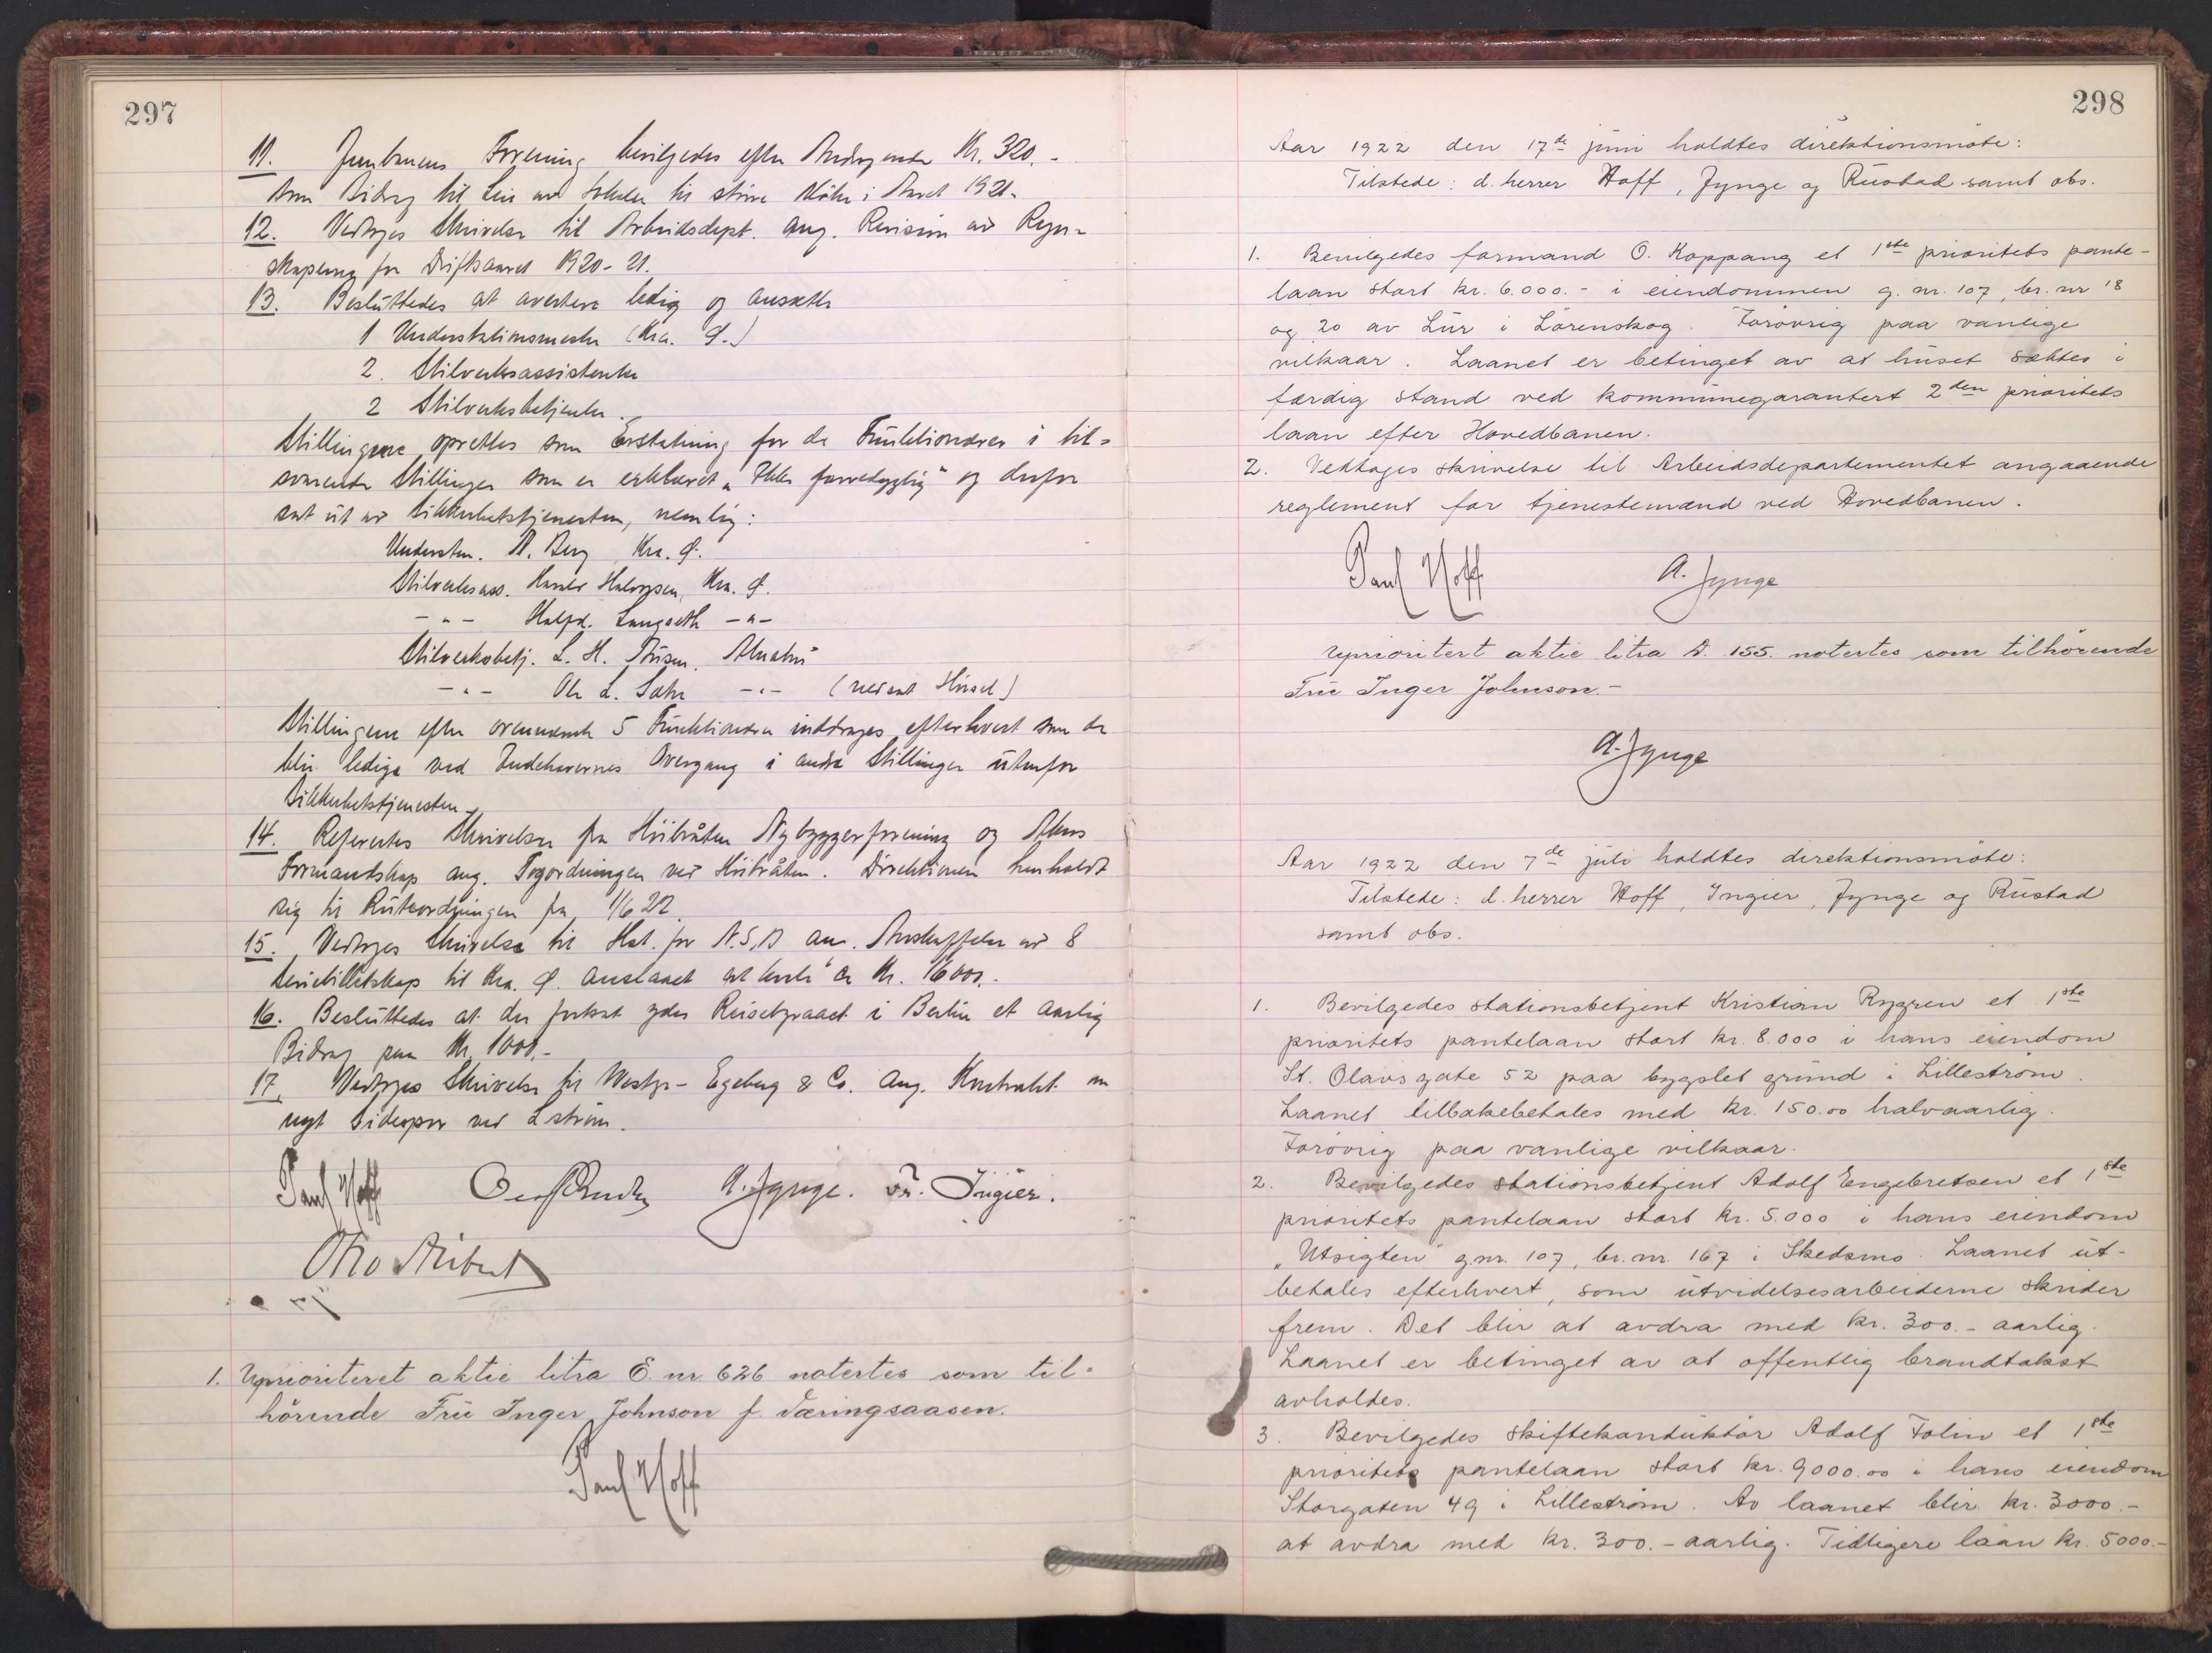 297
11. Jernbanens Forening bevilgedes efter Andragende Kr. 320.-
som Bidrag til Leie av Lokaler til større Møter i Aaret 1921.
12. Vedtoges Skrivelse til Arbeidsdept. ang. Revision av Regn-
skaperne for Driftsaaret 1920-21.
13. Besluttedes at avertere ledig og ansætte
1 Understationsmester (Kra. Ø.)
2. Stilverksassistenter
2 Stilverksbetjenter.
Stillingene oprettes som Erstatning for de Funktionærer i til-
svarende Stillinger som er erklæret "Ikke farvedygtig" og derfor
sat ut av Sikkerhetstjenesten, nemlig:
Understm. A. Berg Kra. Ø.
Stilverksass. Harald Halvorsen, Kra. Ø.
-"- Halfd. Langseth -"-
Stilverksbetj. L. H. Alnabru
-"- Ole L. Sæter -"-
Stillingene efter ovennævnte 5 Funktionærer inddrages efterhvert som de
blir ledige ved Indehavernes Overgang i andre Stillinger utenfor
Sikkerhetstjenesten.
14. Refertes Skrivelser fra Høibråten Nybyggerforening og Akers
Formandskap ang. Togordningen ved Høibråten. Direktionen henholdt
sig til Ruteordningen fra 1/6 22.
15. Vedtoges Skrivelse til Hst. for N.S.B an. Anskaffelse av 8
Seriebilletskap til Kra. Ø. anslaaet at koste ca Kr. 16000.-
16. Besluttedes at der fortsat ydes Reisebyraaet i Berlin et aarlig
Bidrag paa Kr. 1000.-
17. Vedtoges Skrivelse til Westye Egeberg & Co. ang. Kontrakt om
nyt Sidespor ved Lstrøm.
Paul Hoff A. Jynge. Fr. Ingier.
Otto
1. Uprioriteret aktie litra E. nr. 626 notertes som til-
hørende Frü Inger Johnson f. Væringsaasen.
Paul Hoff
298
Aar 1922 den 17de juni holdtes direktionsmöte:
Tilstede: d. herrer Hoff, Jynge og Rustad samt obs.
1. Bevilgedes formand O. Koppang et 1ste prioritets pante-
laan stort kr. 6.000.- i eiendommen g. nr. 107, br. nr 18
og 20 av Lür i Lörenskog. Forövrig paa vanlige
vilkaar. Laanet er betinget av at huset sættes i
færdig stand ved kommunegarantert 2den prioritets
laan efter Hovedbanen.
2. Vedtages skrivelse til Arbeidsdepartementet angaaende
reglement for tjenestemænd ved Hovedbanen.
Paul Hoff A. Jynge
Uprioritert aktie litra D. 155. notertes som tilhörende
Frü Inger Johnson.-
A. Jynge
Aar 1922 den 7de juli holdtes direktionsmöte:
Tilstede: d. herrer Hoff, Ingier, Jynge og Rustad
samt obs.
1. Bevilgedes stationsbetjent Kristian Rygren et 1ste
prioritets pantelaan stort kr. 8.000 i hans eiendom
St. Olavsgate 52 paa bygslet grund i Lilleström.
Laanet tilbakebetales med kr. 150.00 halvaarlig.
Forövrig paa vanlige vilkaar.
2. Bevilgedes stationsbetjent Adolf Engebretsen et 1ste
prioritets pantelaan stort kr. 5.000 i hans eiendom
"Utsigten" g.nr. 107, br. nr. 167 i Skedsmo. Laanet ut-
betales efterhvert, som utvidelsesarbeiderne skrider
frem. Det blir at avdra med kr. 300.- aarlig.
Laanet er betinget av at offentlig brandtakst
avholdes.
3. Bevilgedes skiftekonduktör Adolf Folin et 1ste
prioritets pantelaan stort kr. 9000.00 i hans eiendom
Storgaten 49 i Lilleström. Av laanet blir kr. 3000.-
at avdra med kr. 300.- aarlig. Tidligere laan kr. 5000.-